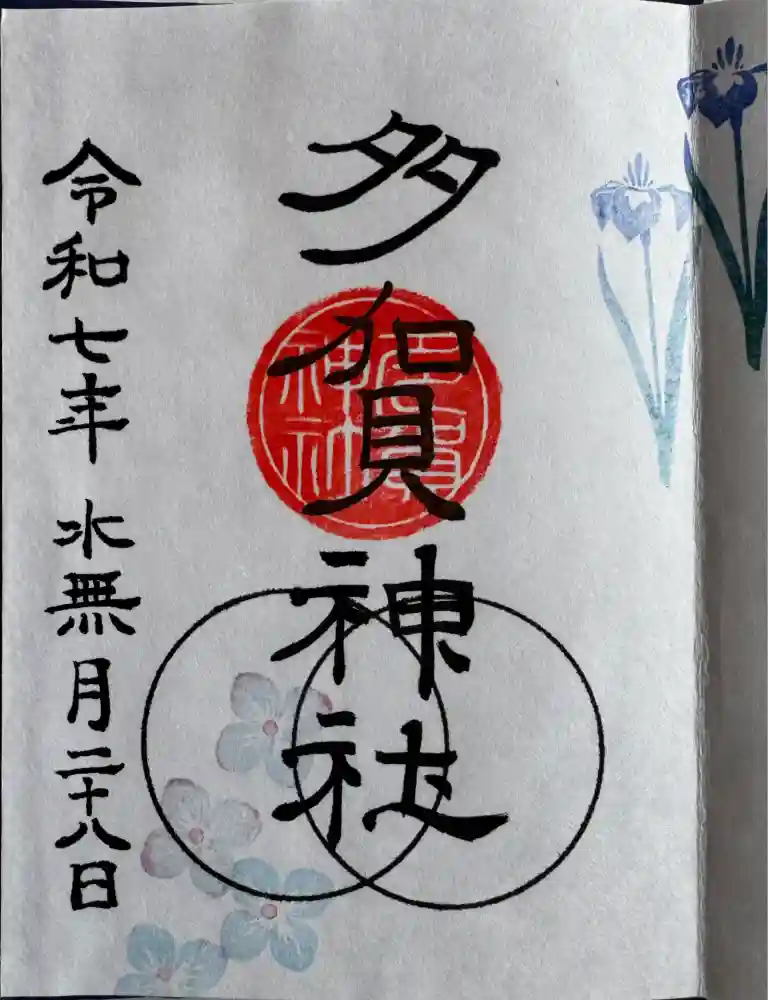 多賀神社
多賀神社
令和七年 水無月二十八日